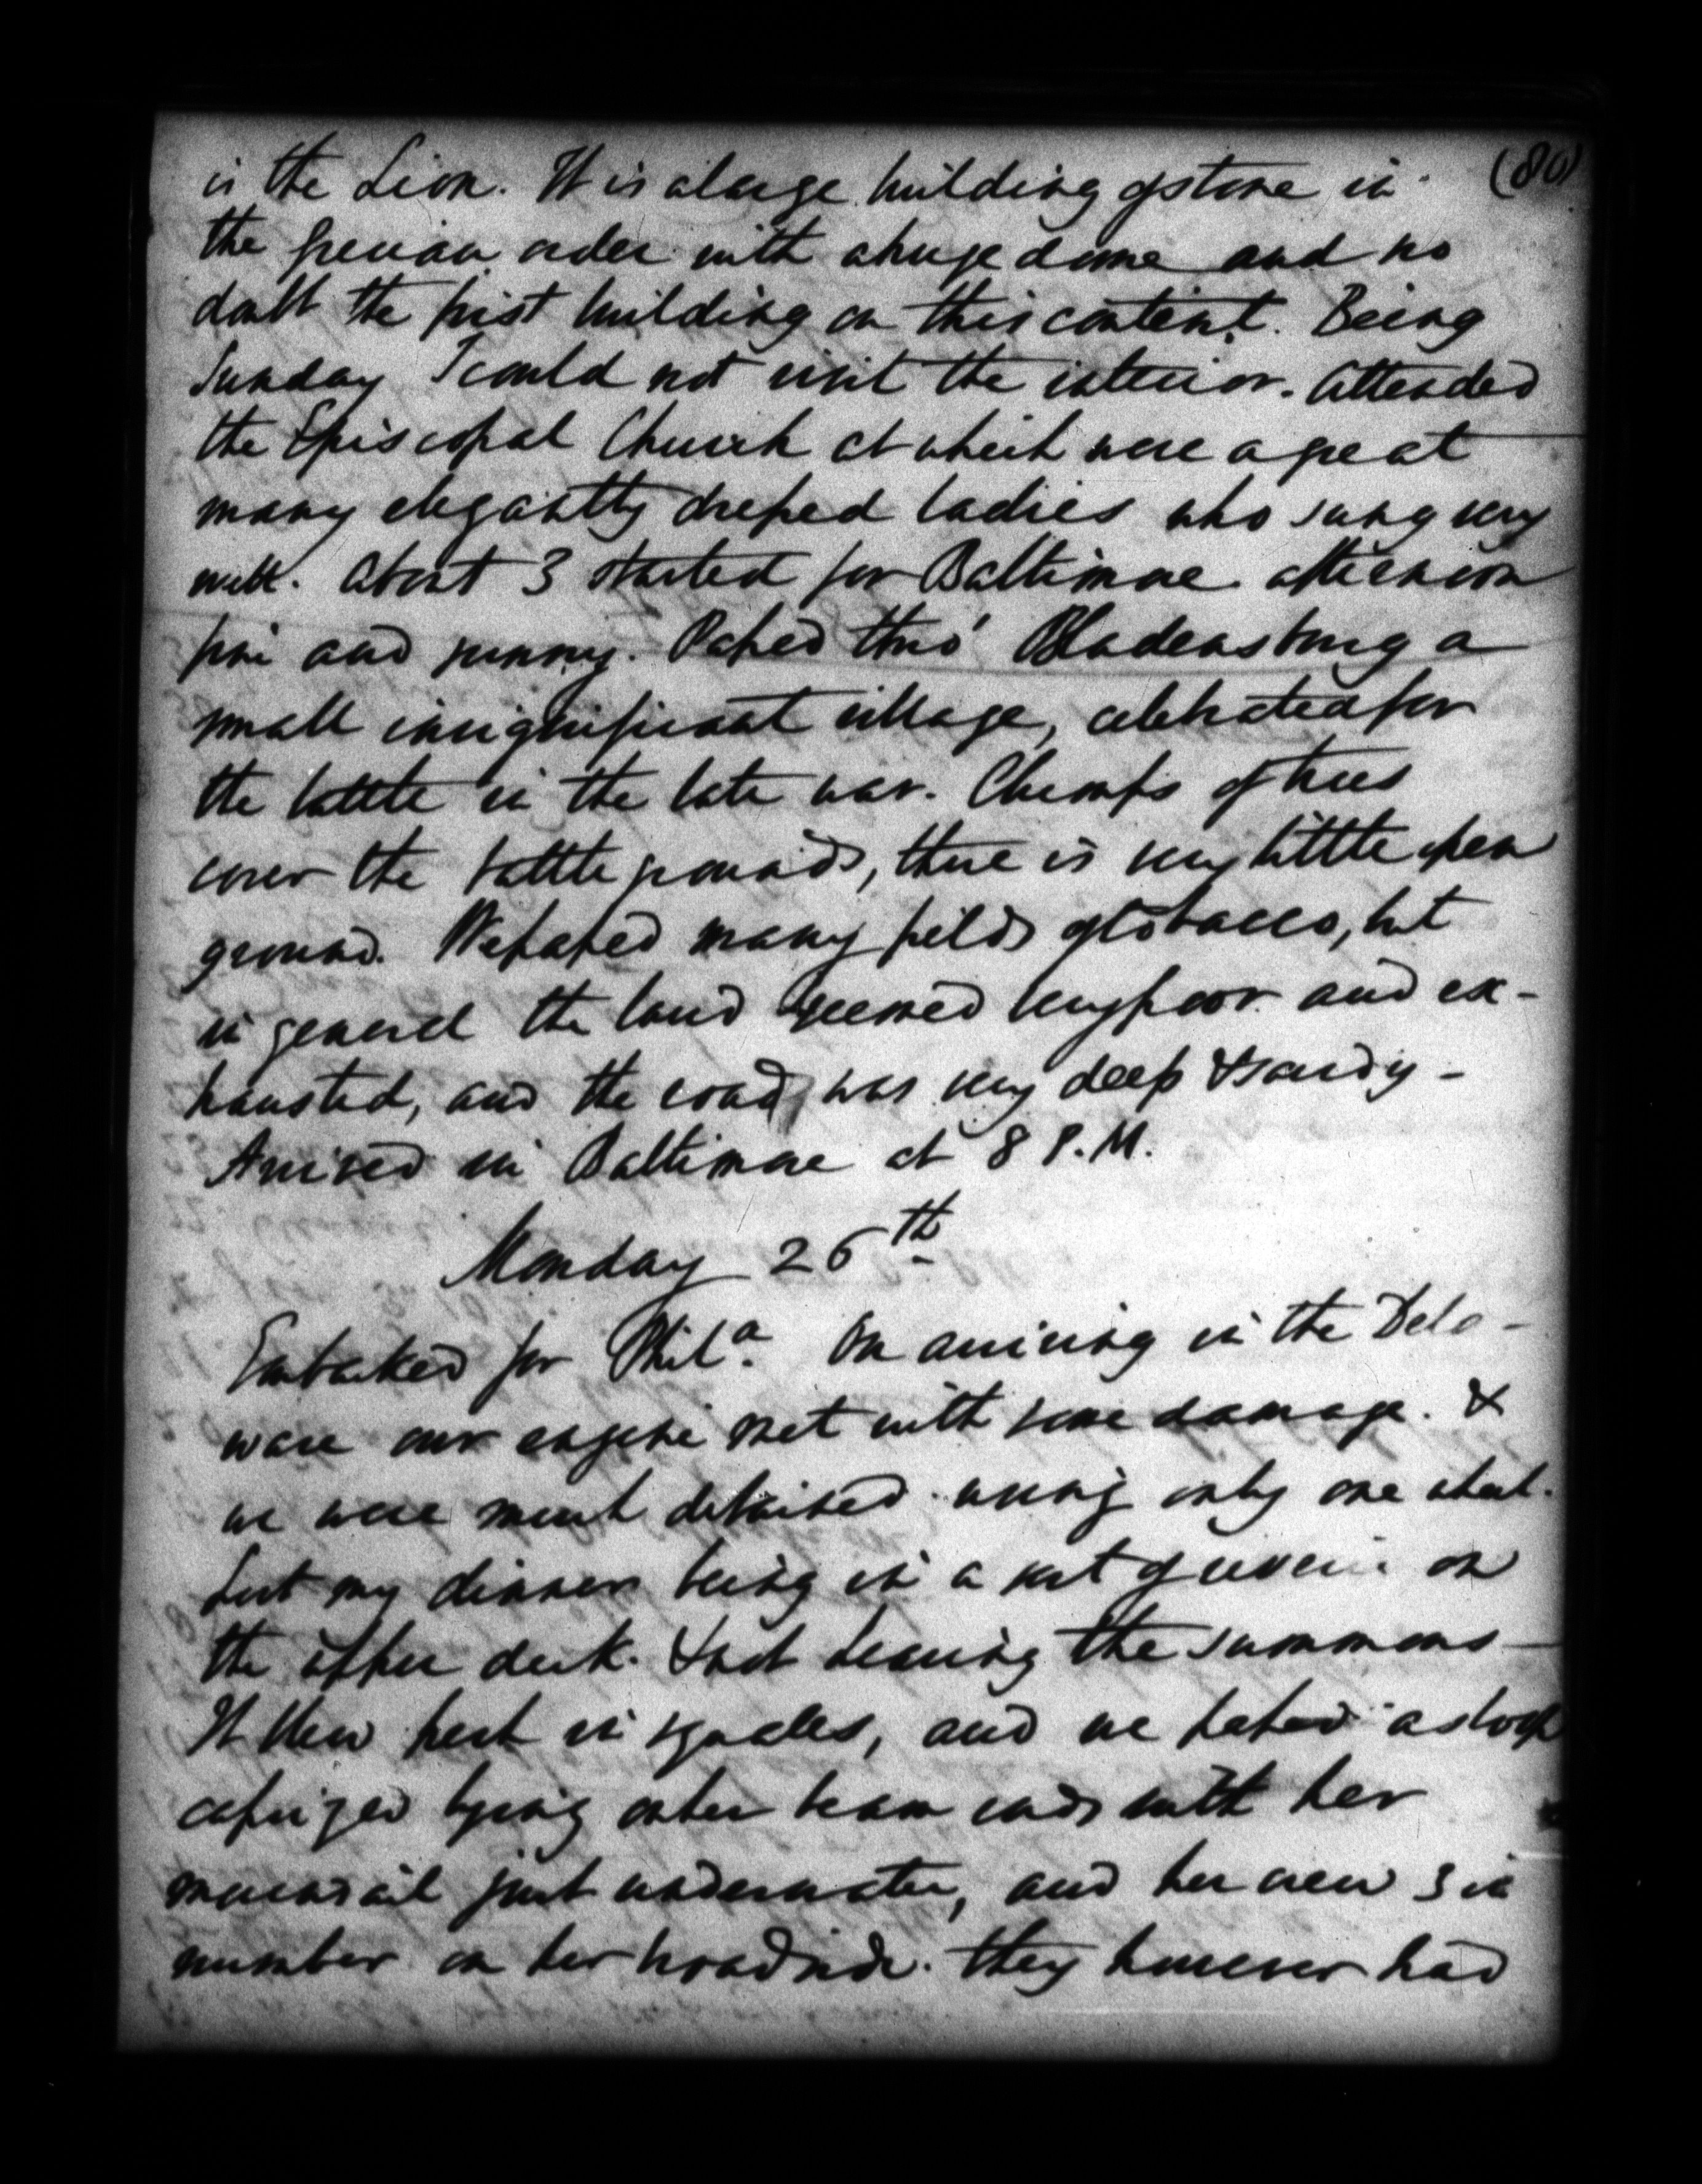 (80)
is the Lion. It is a large building of stone in
the grecian order with a huge dome and no
doubt the first building on this contint. Being
Sunday I could not visit the interior. Attended
the Episcopal Church at which were a great
many elegantly dressed ladies who sung very
well. About 3 started for Baltimore. afternoon
fine and sunny. Passed thro' Bladensburg a
small insignificant village, celebrated for
the battle in the late war. Clumps of trees
cover the battle grounds, there is very little open
ground. We passed many fields of tobacco, but
in general the land seemed very poor and ex-
hausted, and the road was very deep & sandy -
Arrived in Baltimore at 8 P.M.
Monday 26th
Embarked for Phila. On arriving in the Dela-
ware our engine met with some damage. &
we were much detained using only one wheel.
Lost my dinner being in a sort of on
the upper deck. & not hearing the summons -
It blew fresh in squalls, and we passed a sloop
capsized lying on her beam ends with her
mainsail just underwater, and her crew 3 in
number on her broadside. they however had